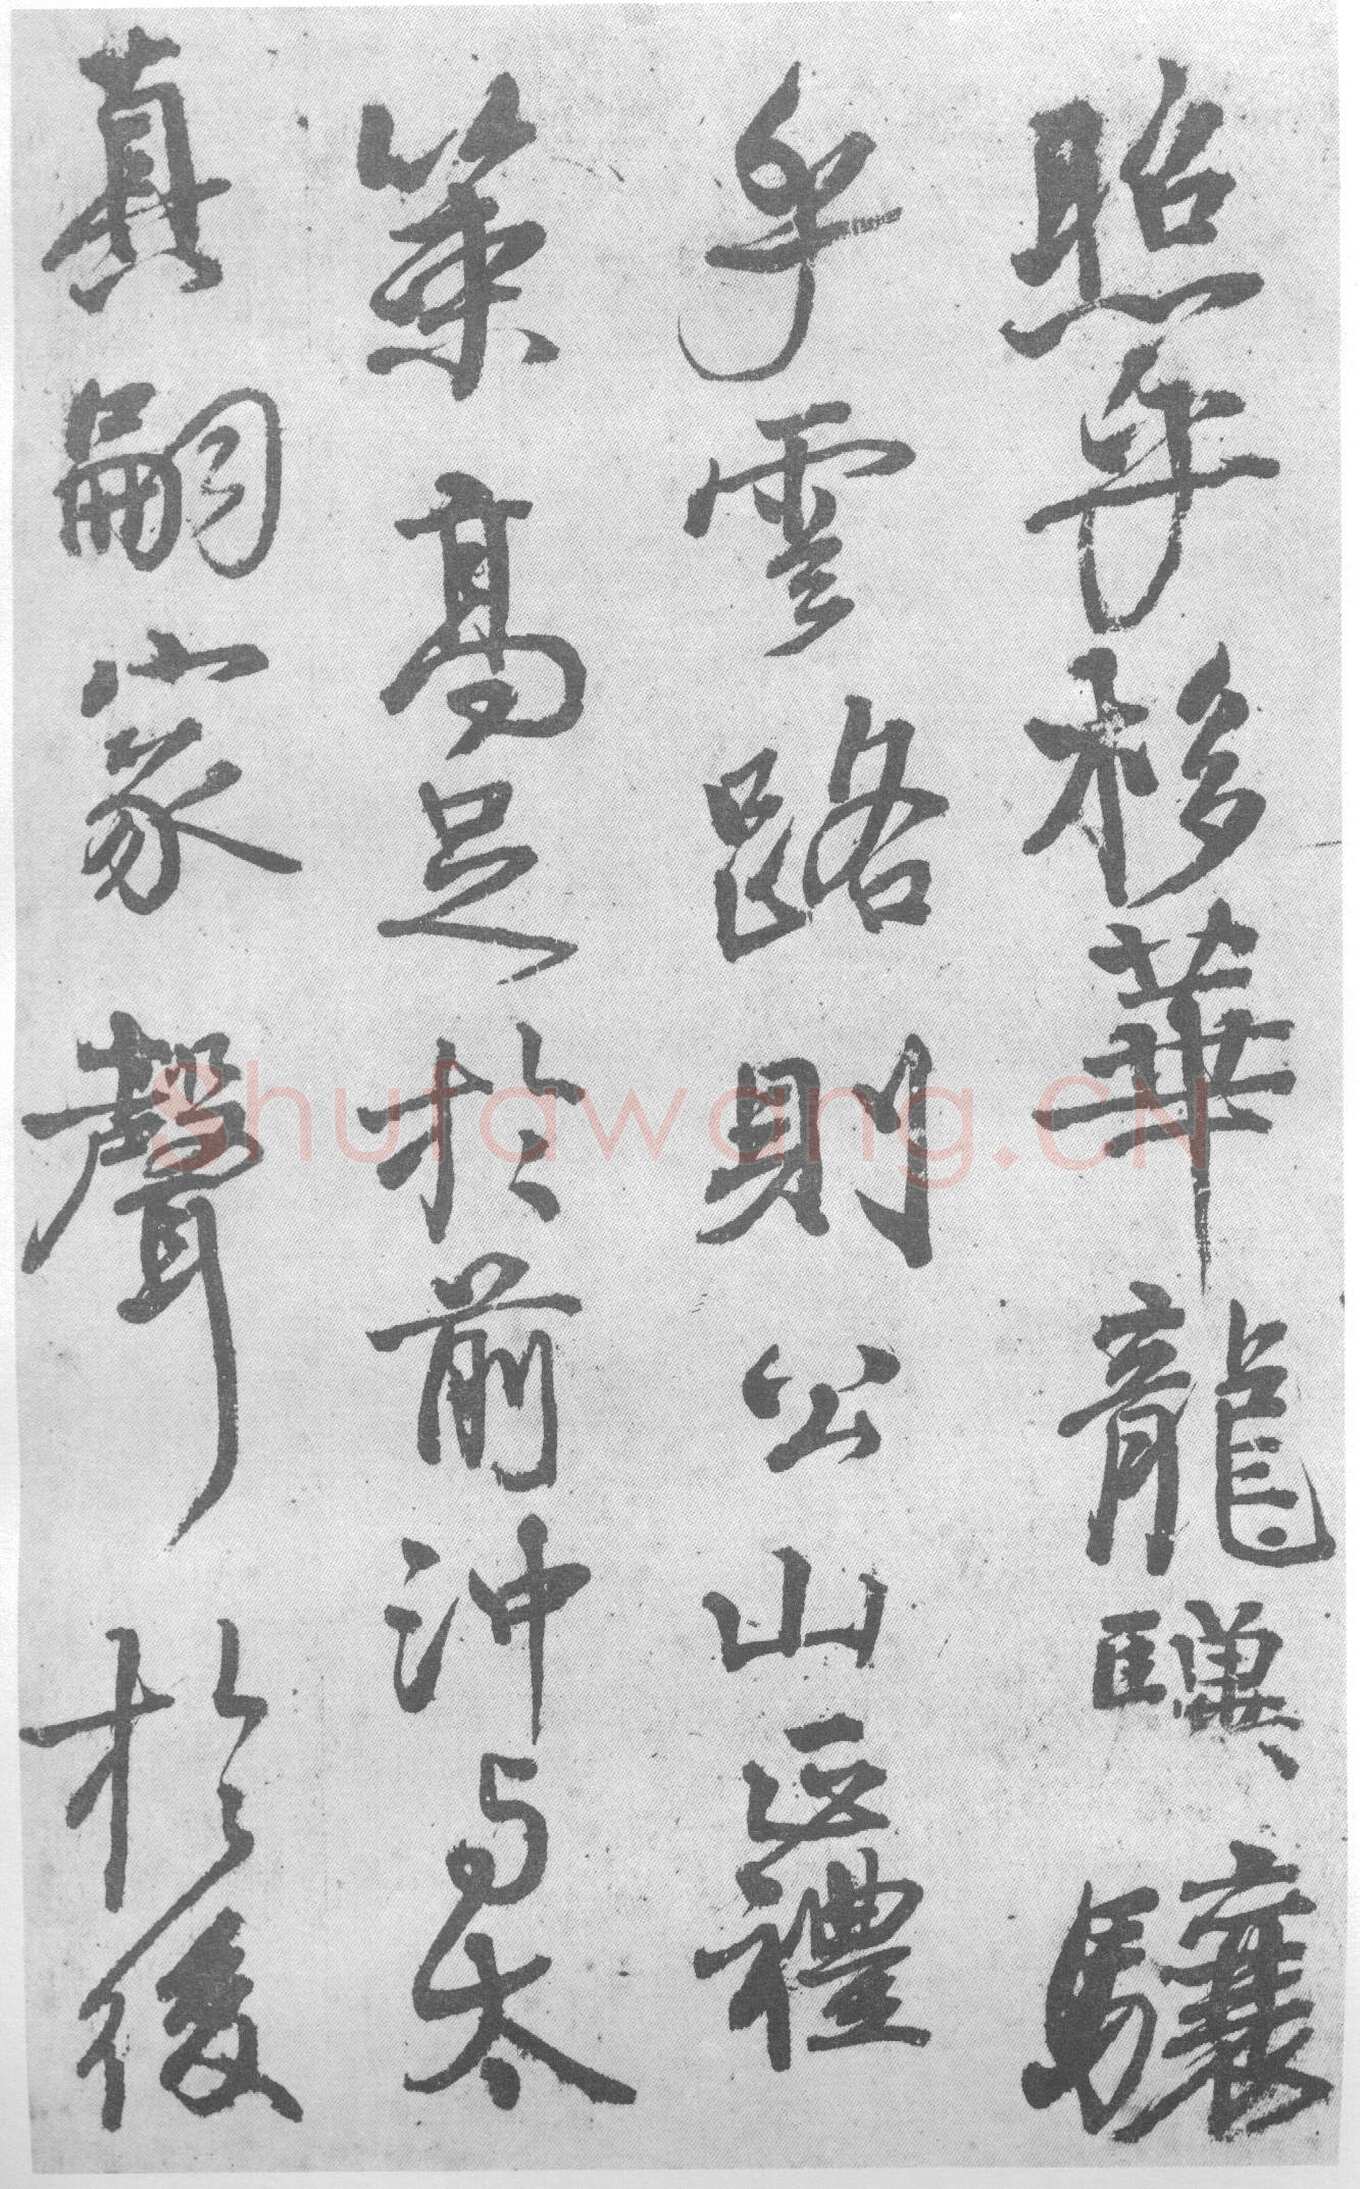 照乎移華龍驥驤
乎雲路則公山正禮
策高足於前沖与太
真嗣家聲於後
Shufawang.CN